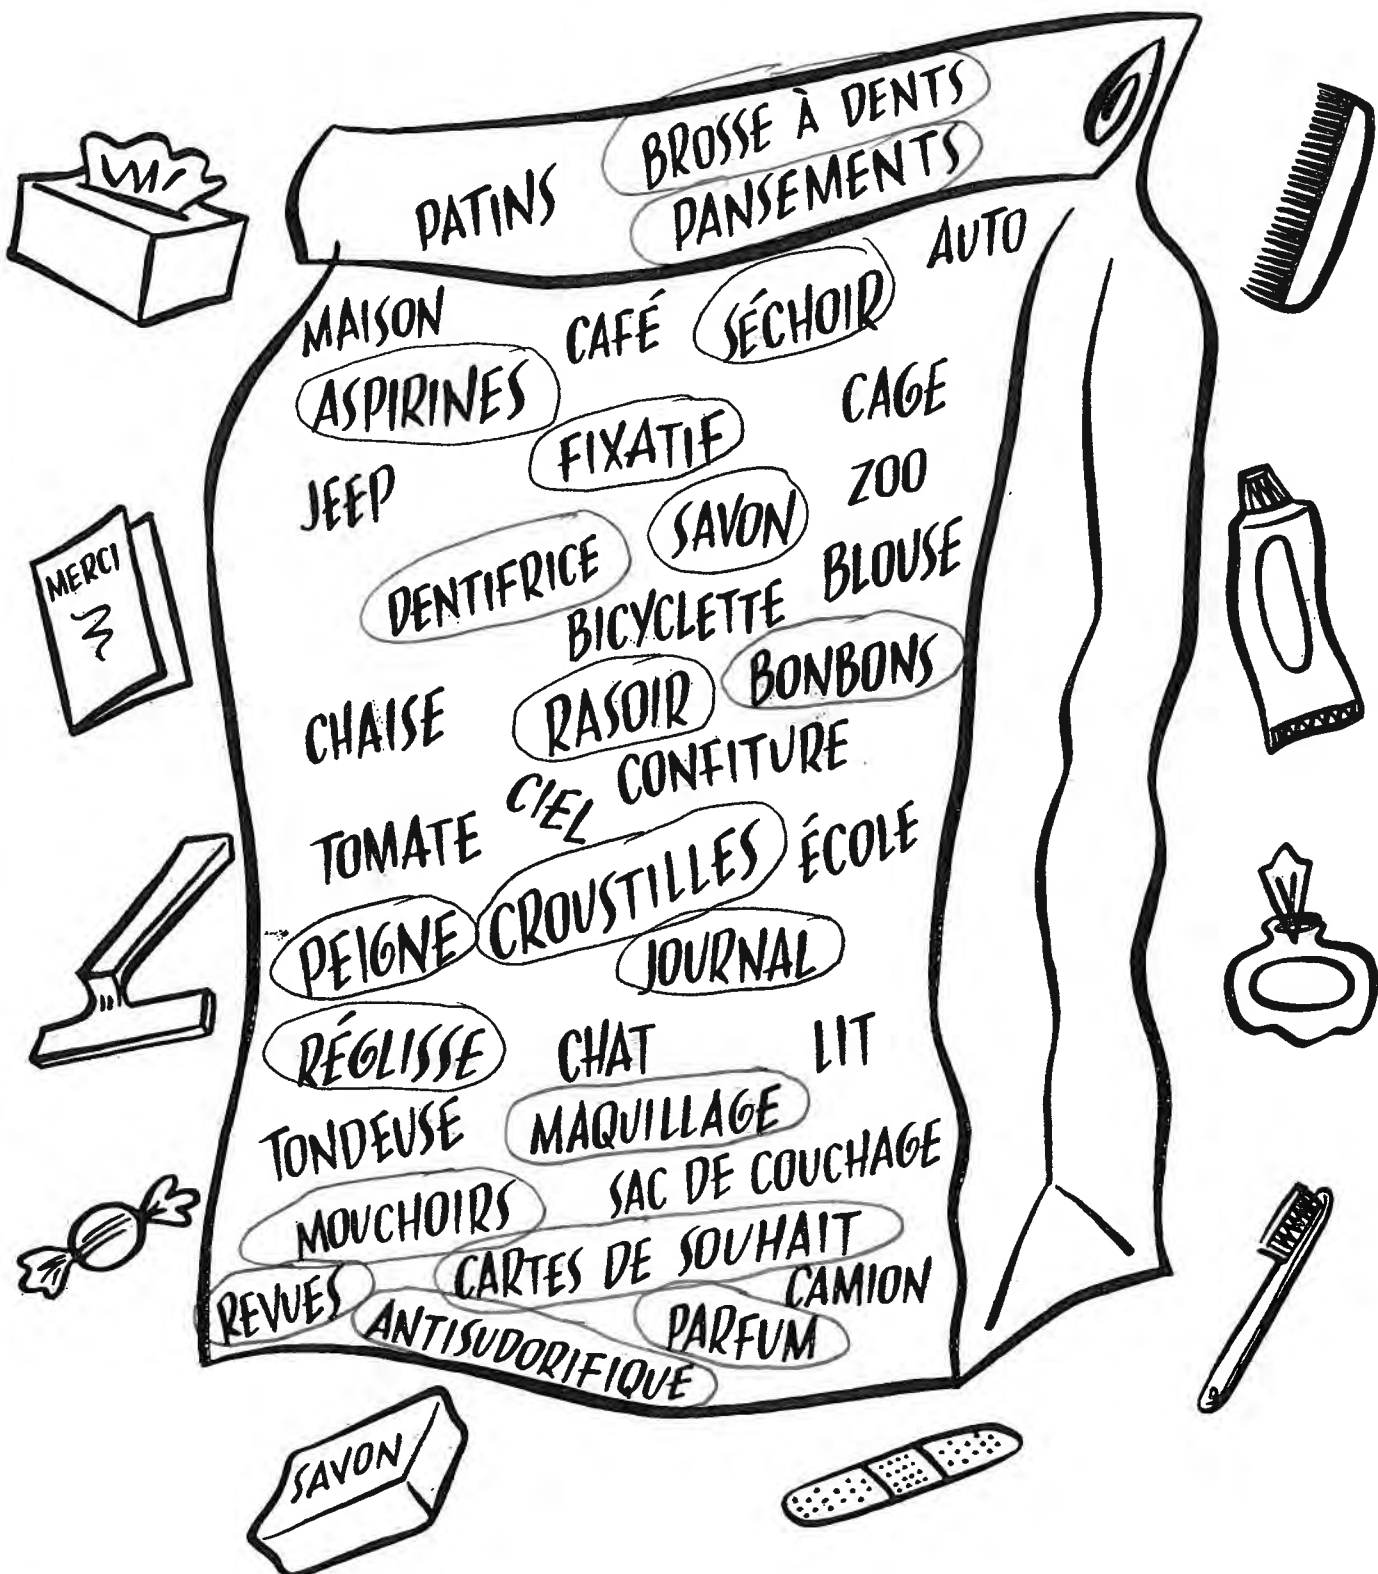 BROSSE À DENTS
PATINS PANSEMENTS
AUTO
MAISON CAFÉ SÉCHOIR
ASPIRINES CAGE
FIXATIF
JEEP ZOO
SAVON
DENTIFRICE BLOUSE
BICYCLETTE
BONBONS
CHAISE RASOIR
CONFITURE
CIEL
TOMATE ÉCOLE
CROUSTILLES
PEIGNE JOURNAL
RÉGLISSE CHAT LIT
TONDEUSE MAQUILLAGE
SAC DE COUCHAGE
MOUCHOIRS
CARTES DE SOUHAIT
REVUES CAMION
ANTISUDORIFIQUE PARFUM
MERCI
SAVON